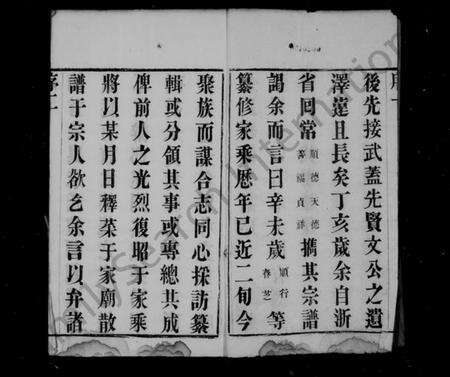 序一
後先接武蓋先賢文公之遺
澤遠且長矣丁亥歲余自浙
省回常順德天德壽福貞祥攜其宗譜
謁余而言曰辛未歲順行春芝等
纂修家乘歷年已近二旬今
聚族而謀合志同心採訪纂
輯或分領其事或專總其成
俾前人之光烈復昭于家乘
將以某月日釋菜于家廟散
譜于宗人欲乞余言以弁諸
序二